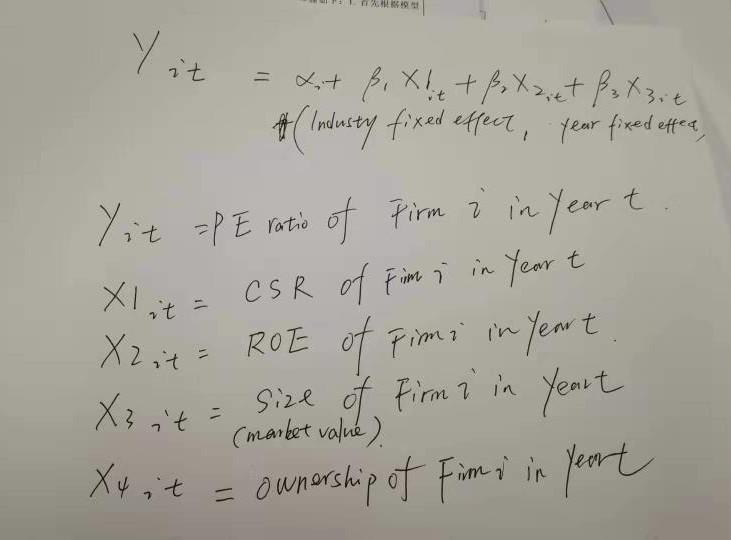 1. 首先根据模型
Y it = α i + β1 X1 it + β2 X2 it + β3 X3 it
(Industy fixed effect, year fixed effect,
Y it = PE ratio of Firm i in Year t.
X1 it = CSR of Fim i in Year t
X2 it = ROE of Firm i in Year t.
X3 it = Size of Firm i in Year t
(market value)
X4 it = ownership of Firm i in Year t